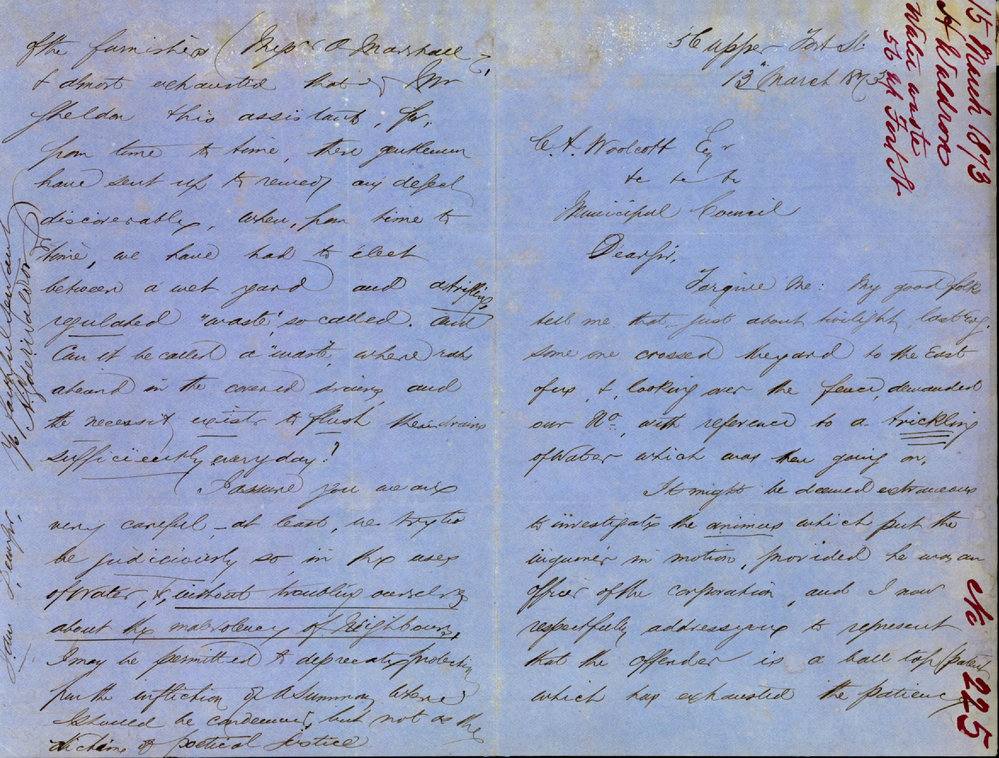 56 Upper Fort St
13 March 1873
C. A. Woolcott Esqr
&c &c &c
Municipal Council
Dear Sir,
Forgive me: My good folk
tell me that just about twilight, last evg.
some one crossed the yard to the East
of us, &, looking over the fence, demanded
our No, with reference to a trickling
of Water which was then going on.
It might be deemed extraneous
to investigate the animus which put the
inquirer in motion, provided he was an
officer of the corporation, and I now
respectfully address you to represent
that the offender is a ball tap (patent
which has exhausted the patience
of the furnishers (Messrs O. Marshall
& almost exhausted that of Mr
Sheldon this assistant, for,
from time to time, these gentlemen
have sent up to remedy any defect
discoverable, when, from time to
time, we have had to elect
between a wet yard and a trifling
regulated "waste" so called. and
Can it be called a "waste" where rats
abound in the covered drains, and
the necessity exists to flush these drains
sufficiently every day?
I assure you we are
very careful – at least, we try to
be judiciously so, in the uses
of Water, &, without troubling ourselves
about the malevolency of Neighbours.
I may be permitted to deprecate protection
from the infliction of a Summons where
I should be condemned, but not on the
dictum of poetical justice
I am Dear Sir,
Yr faithful Servant
H Waldron
15 March 1873
H Waldron
Water waste
56 U Fort St
No 225